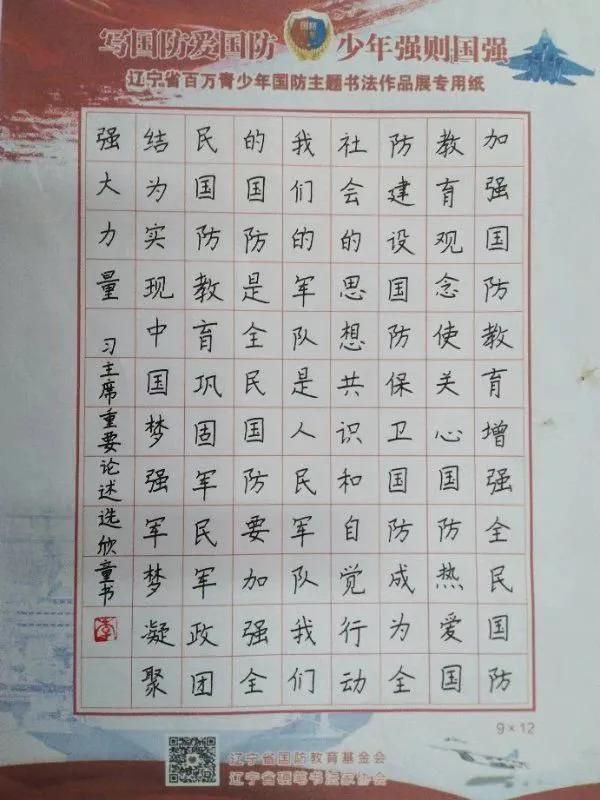 写国防爱国防 少年强则国强
辽宁省百万青少年国防主题书法作品展专用纸
加强国防教育增强全民国防
教育观念使关心国防热爱国
防建设国防保卫国防成为全
社会的思想共识和自觉行动
我们的军队是人民军队我们
的国防是全民国防要加强全
民国防教育巩固军民军政团
结为实现中国梦强军梦凝聚
强大力量 习主席重要论述选 欣童书
李
9×12
辽宁省国防教育基金会
辽宁省硬笔书法家协会